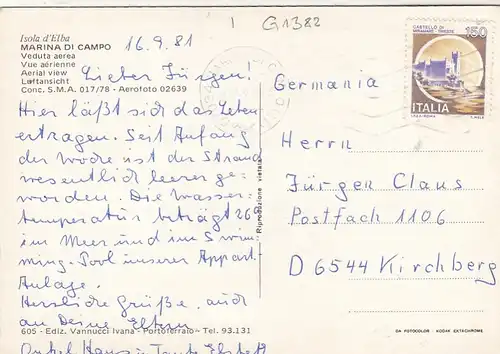 G1382
Isola d'Elba
MARINA DI CAMPO
Veduta aerea
Vue aérienne
Aerial view
Luftansicht
Conc. S.M.A. 017/78 - Aerofoto 02639
16.9.81
CASTELLO DI
MIRAMARE - TRIESTE
150
ITALIA
Lieber Jürgen!
Hier läßt sich das Leben
ertragen. Seit Anfang
der Woche ist der Strand
wesentlich leerer ge-
worden. Die Wasser-
temperatur beträgt 26
im Meer und im Swim-
ming-Pool unserer Appart.
Anlage.
Herzliche Grüße, auch
an Deine Eltern
Onkel Hans u. Tante Elsbeth
Riproduzione vietata
Germania
Herrn
Jürgen Claus
Postfach 1106
D 6544 Kirchberg
605 - Ediz. Vannucci Ivana - Portoferraio - Tel. 93.131
DA FOTOCOLOR - KODAK EKTACHROME